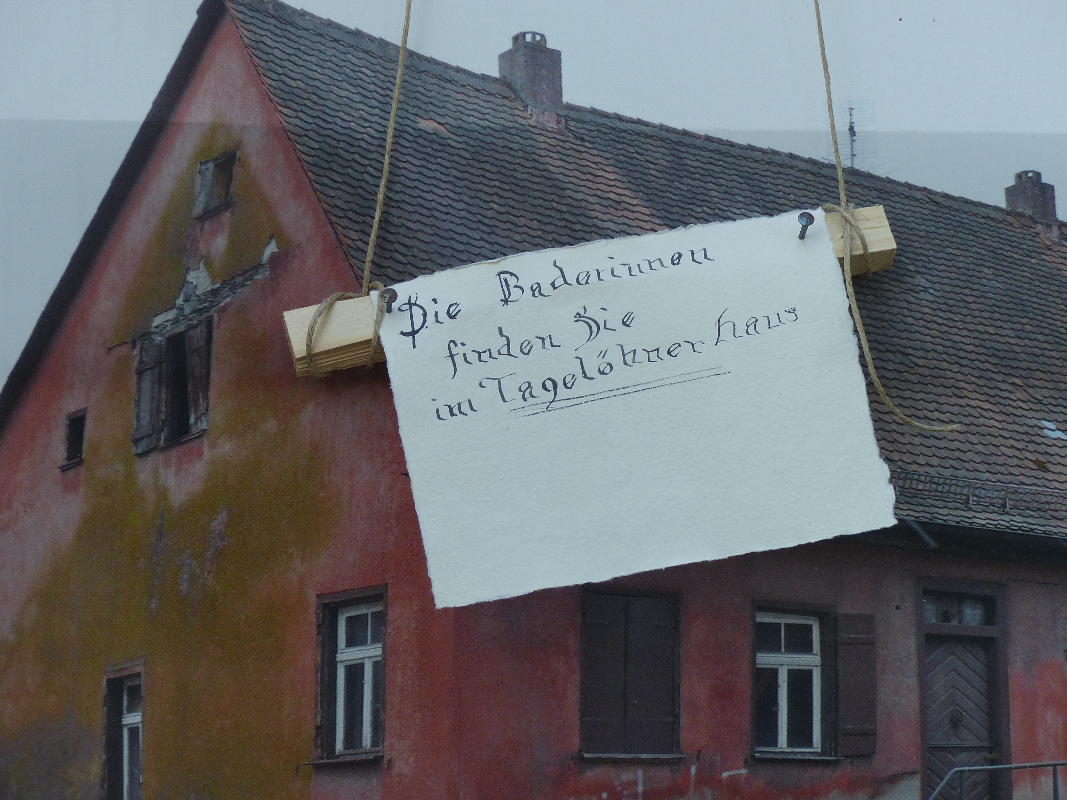 Die Baderinnen
finden Sie
im Tagelöhnerhaus